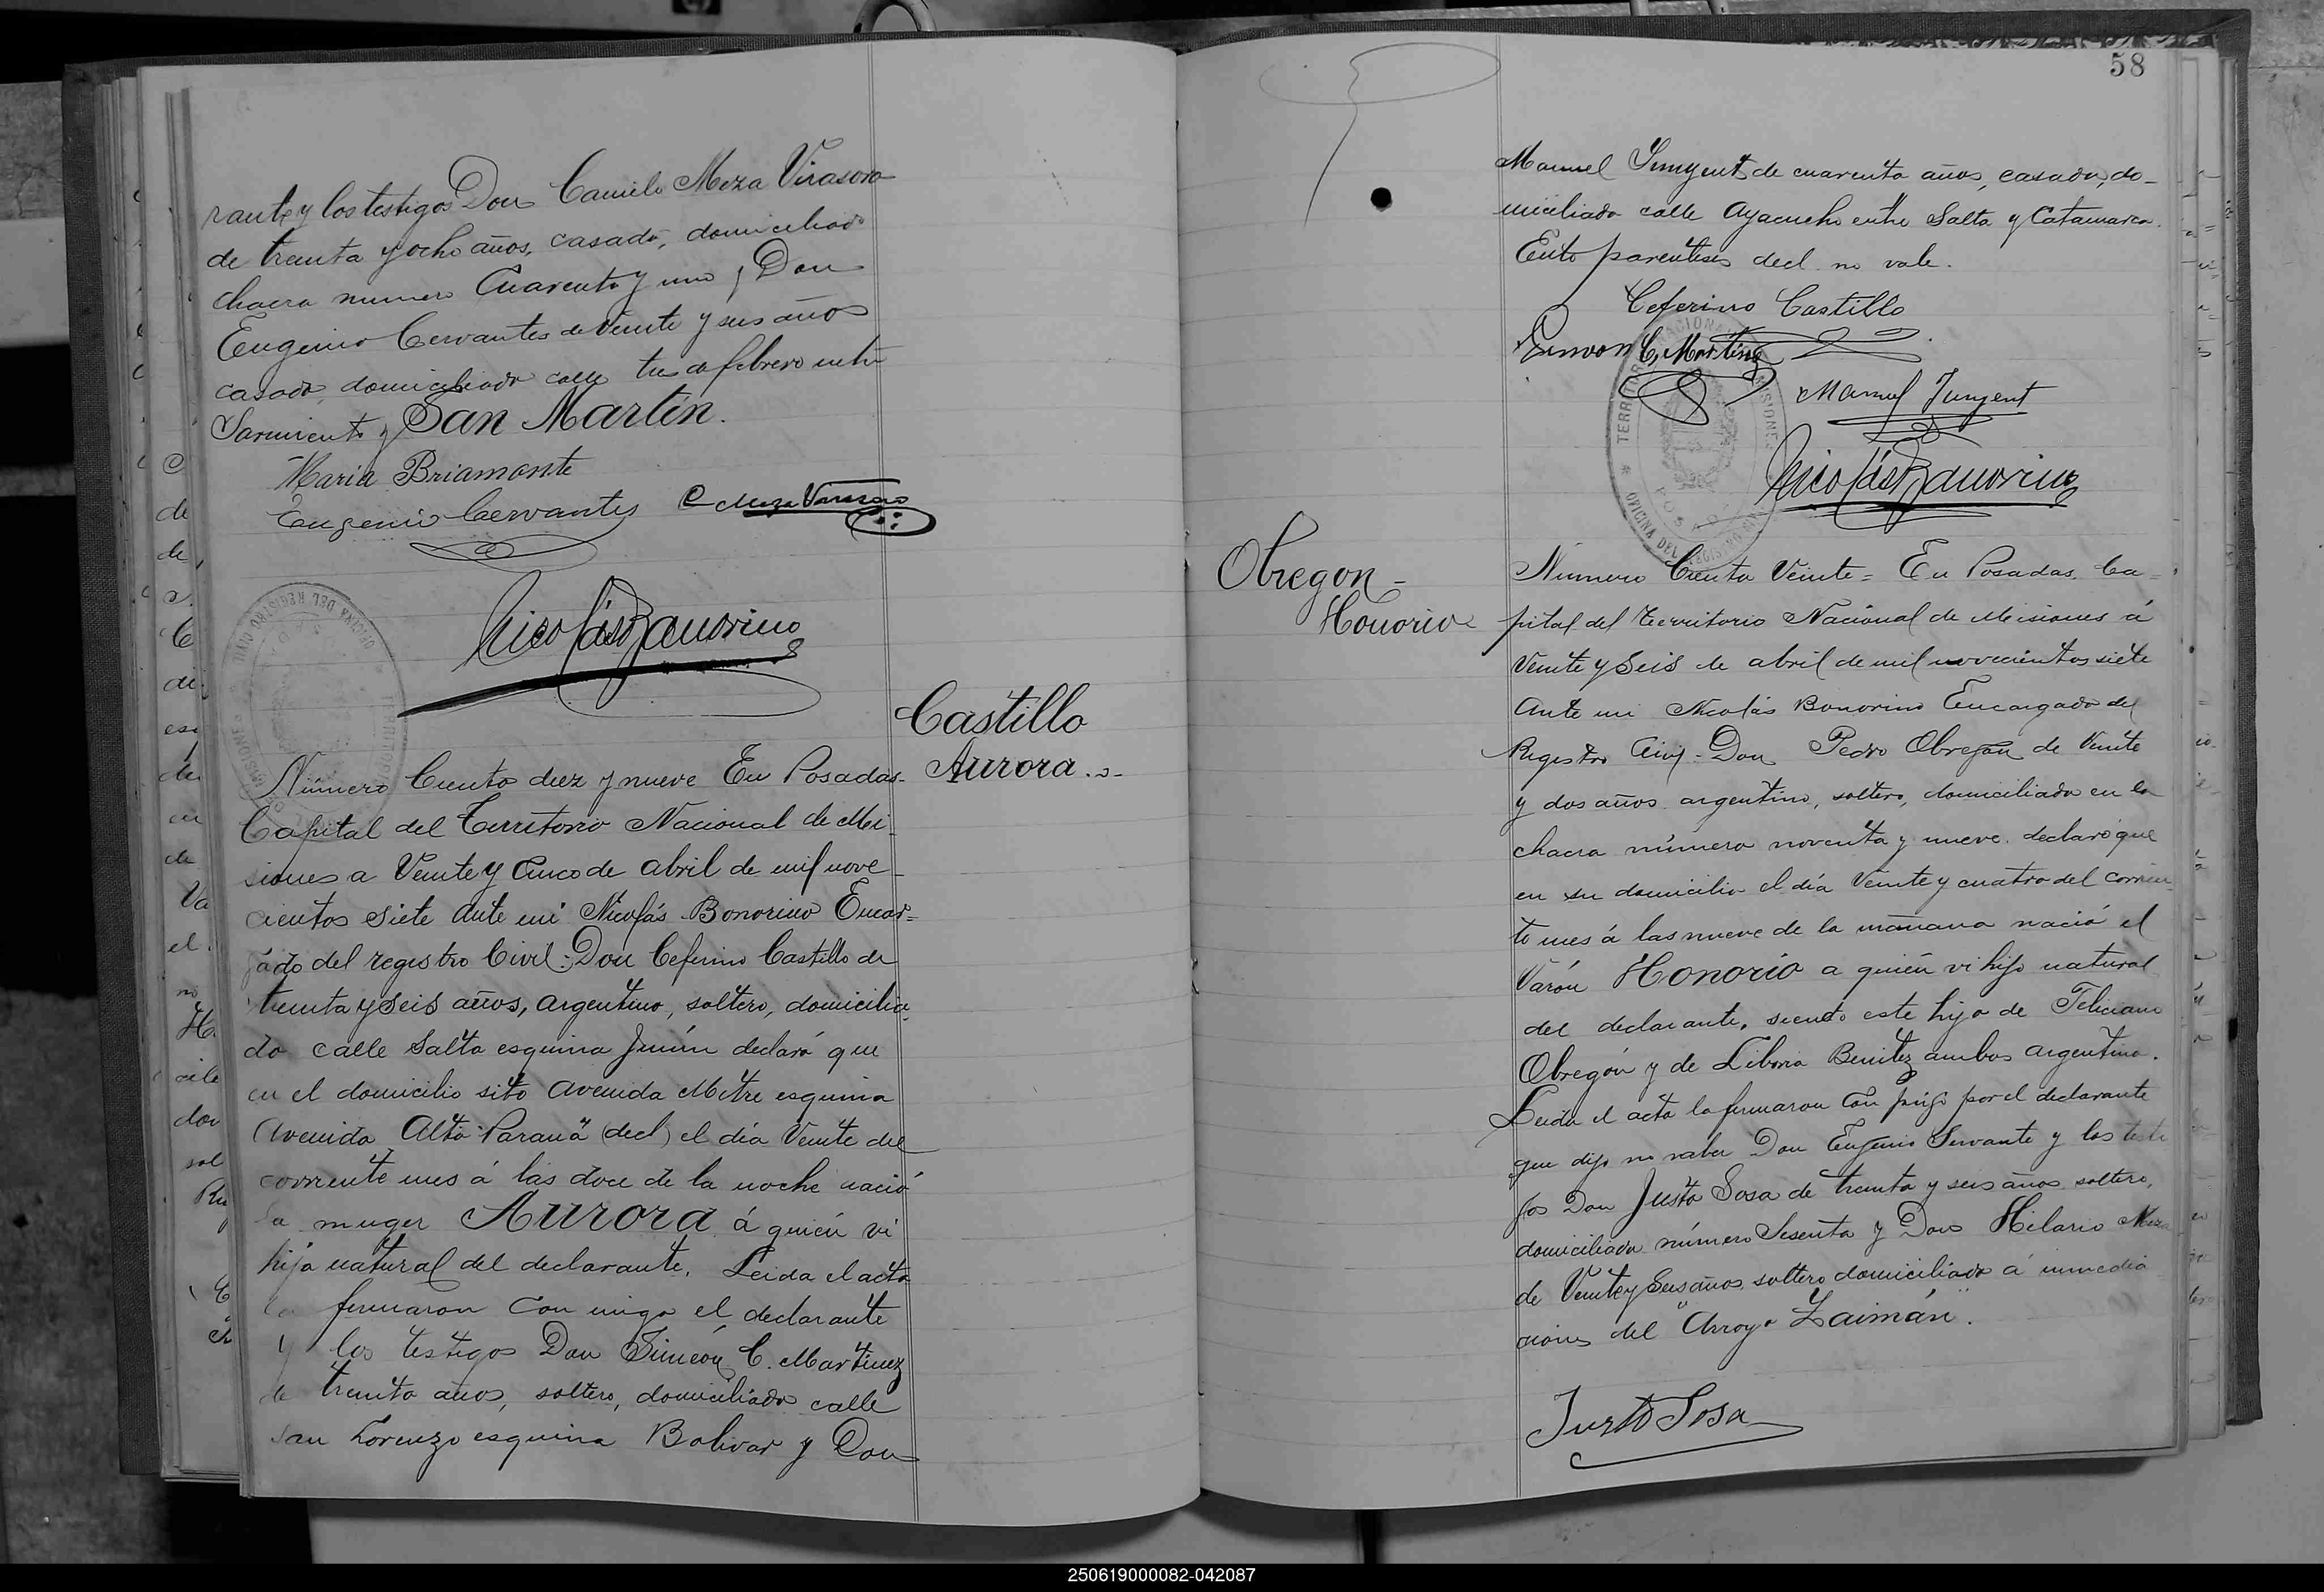 rante y los testigos Don Camilo Meza Virasoro
de treinta y ocho años, casado, domiciliado
chacra numero Cuarenta y uno y Don
Eugenio Cervantes de veinte y seis años
casado, domiciliado calle tres de febrero entre
Sarmiento y San Martin.
Maria Briamonte
Eugenio Cervantes C Meza Virasoro
Nicolás Bonorino
Castillo
Aurora
Número Ciento diez y nueve En Posadas
Capital del Territorio Nacional de Mi-
siones a Veinte y Cinco de abril de mil nove
cientos siete Ante mi Nicolás Bonorino Encar=
gado del registro Civil: Don Ceferino Castillo de
treinta y seis años, argentino, soltero, domicilia
do calle Salta esquina Junín declaró que
en el domicilio sito avenida Mitre esquina
Avenida Alto Paraná (decl) el día Veinte del
corriente mes á las doce de la noche nació
la muger Aurora á quien ví
hija natural del declarante. Leida el acta
la firmaron con migo el declarante
y los testigos Don Simeón C. Martinez
de treinta años, soltero, domiciliado calle
San Lorenzo esquina Bolivar y Don
58
Manuel Junyent de cuarenta años, casado, do-
miciliado calle Ayacucho entre Salta y Catamarca.
Ento parentesis decl. no vale.
Ceferino Castillo
Simeon C. Martinez
Manuel Junyent
Nicolás Bonorino
Obregon -
Honorio
Número Ciento Veinte = En Posadas. Ca=
pital del Territorio Nacional de Misiones á
Veinte y Seis de abril de mil novecientos siete
Ante mi Nicolás Bonorino Encargado del
Registro Civil - Don Pedro Obregon de Veinte
y dos años argentino, soltero, domiciliado en la
chacra número noventa y nueve. declaró que
en su domicilio el día Veinte y cuatro del corrien
te mes á las nueve de la mañana nació el
Varón Honorio a quien vi hijo natural
del declarante, siendo este hijo de Feliciano
Obregón y de Liboria Benitez ambos argentino.
Leida el acta la firmaron con migo por el declarante
que dijo no saber Don Eugenio Servante y los testi
gos Don Justo Sosa de treinta y seis años soltero,
domiciliado número Sesenta y Don Hilario Meza
de Veinte y Seis años, soltero domiciliado á inmedia
ciones del "Arroyo Zaimán".
Justo Sosa
250619000082-042087